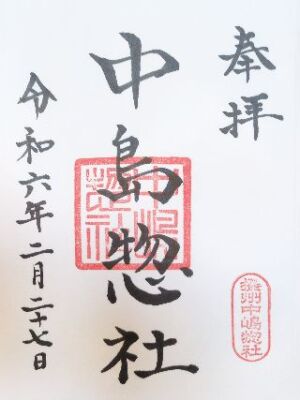 奉拝
中島惣社
中嶋惣社
攝州中嶋惣社
令和六年二月二十七日